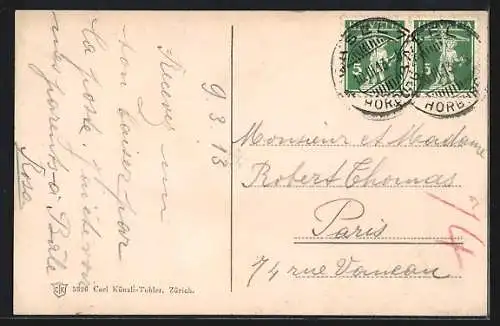 9. 3. 13
Recevez un
bon baiser par
la poste.
mes parents à Bâle
Rosa
5926 Carl Künzli-Tobler, Zürich.
HELVETIA HELVETIA
5 5
HORB
HORB
Monsieur et Madame
Robert Thomas
Paris
74 rue Vaneau